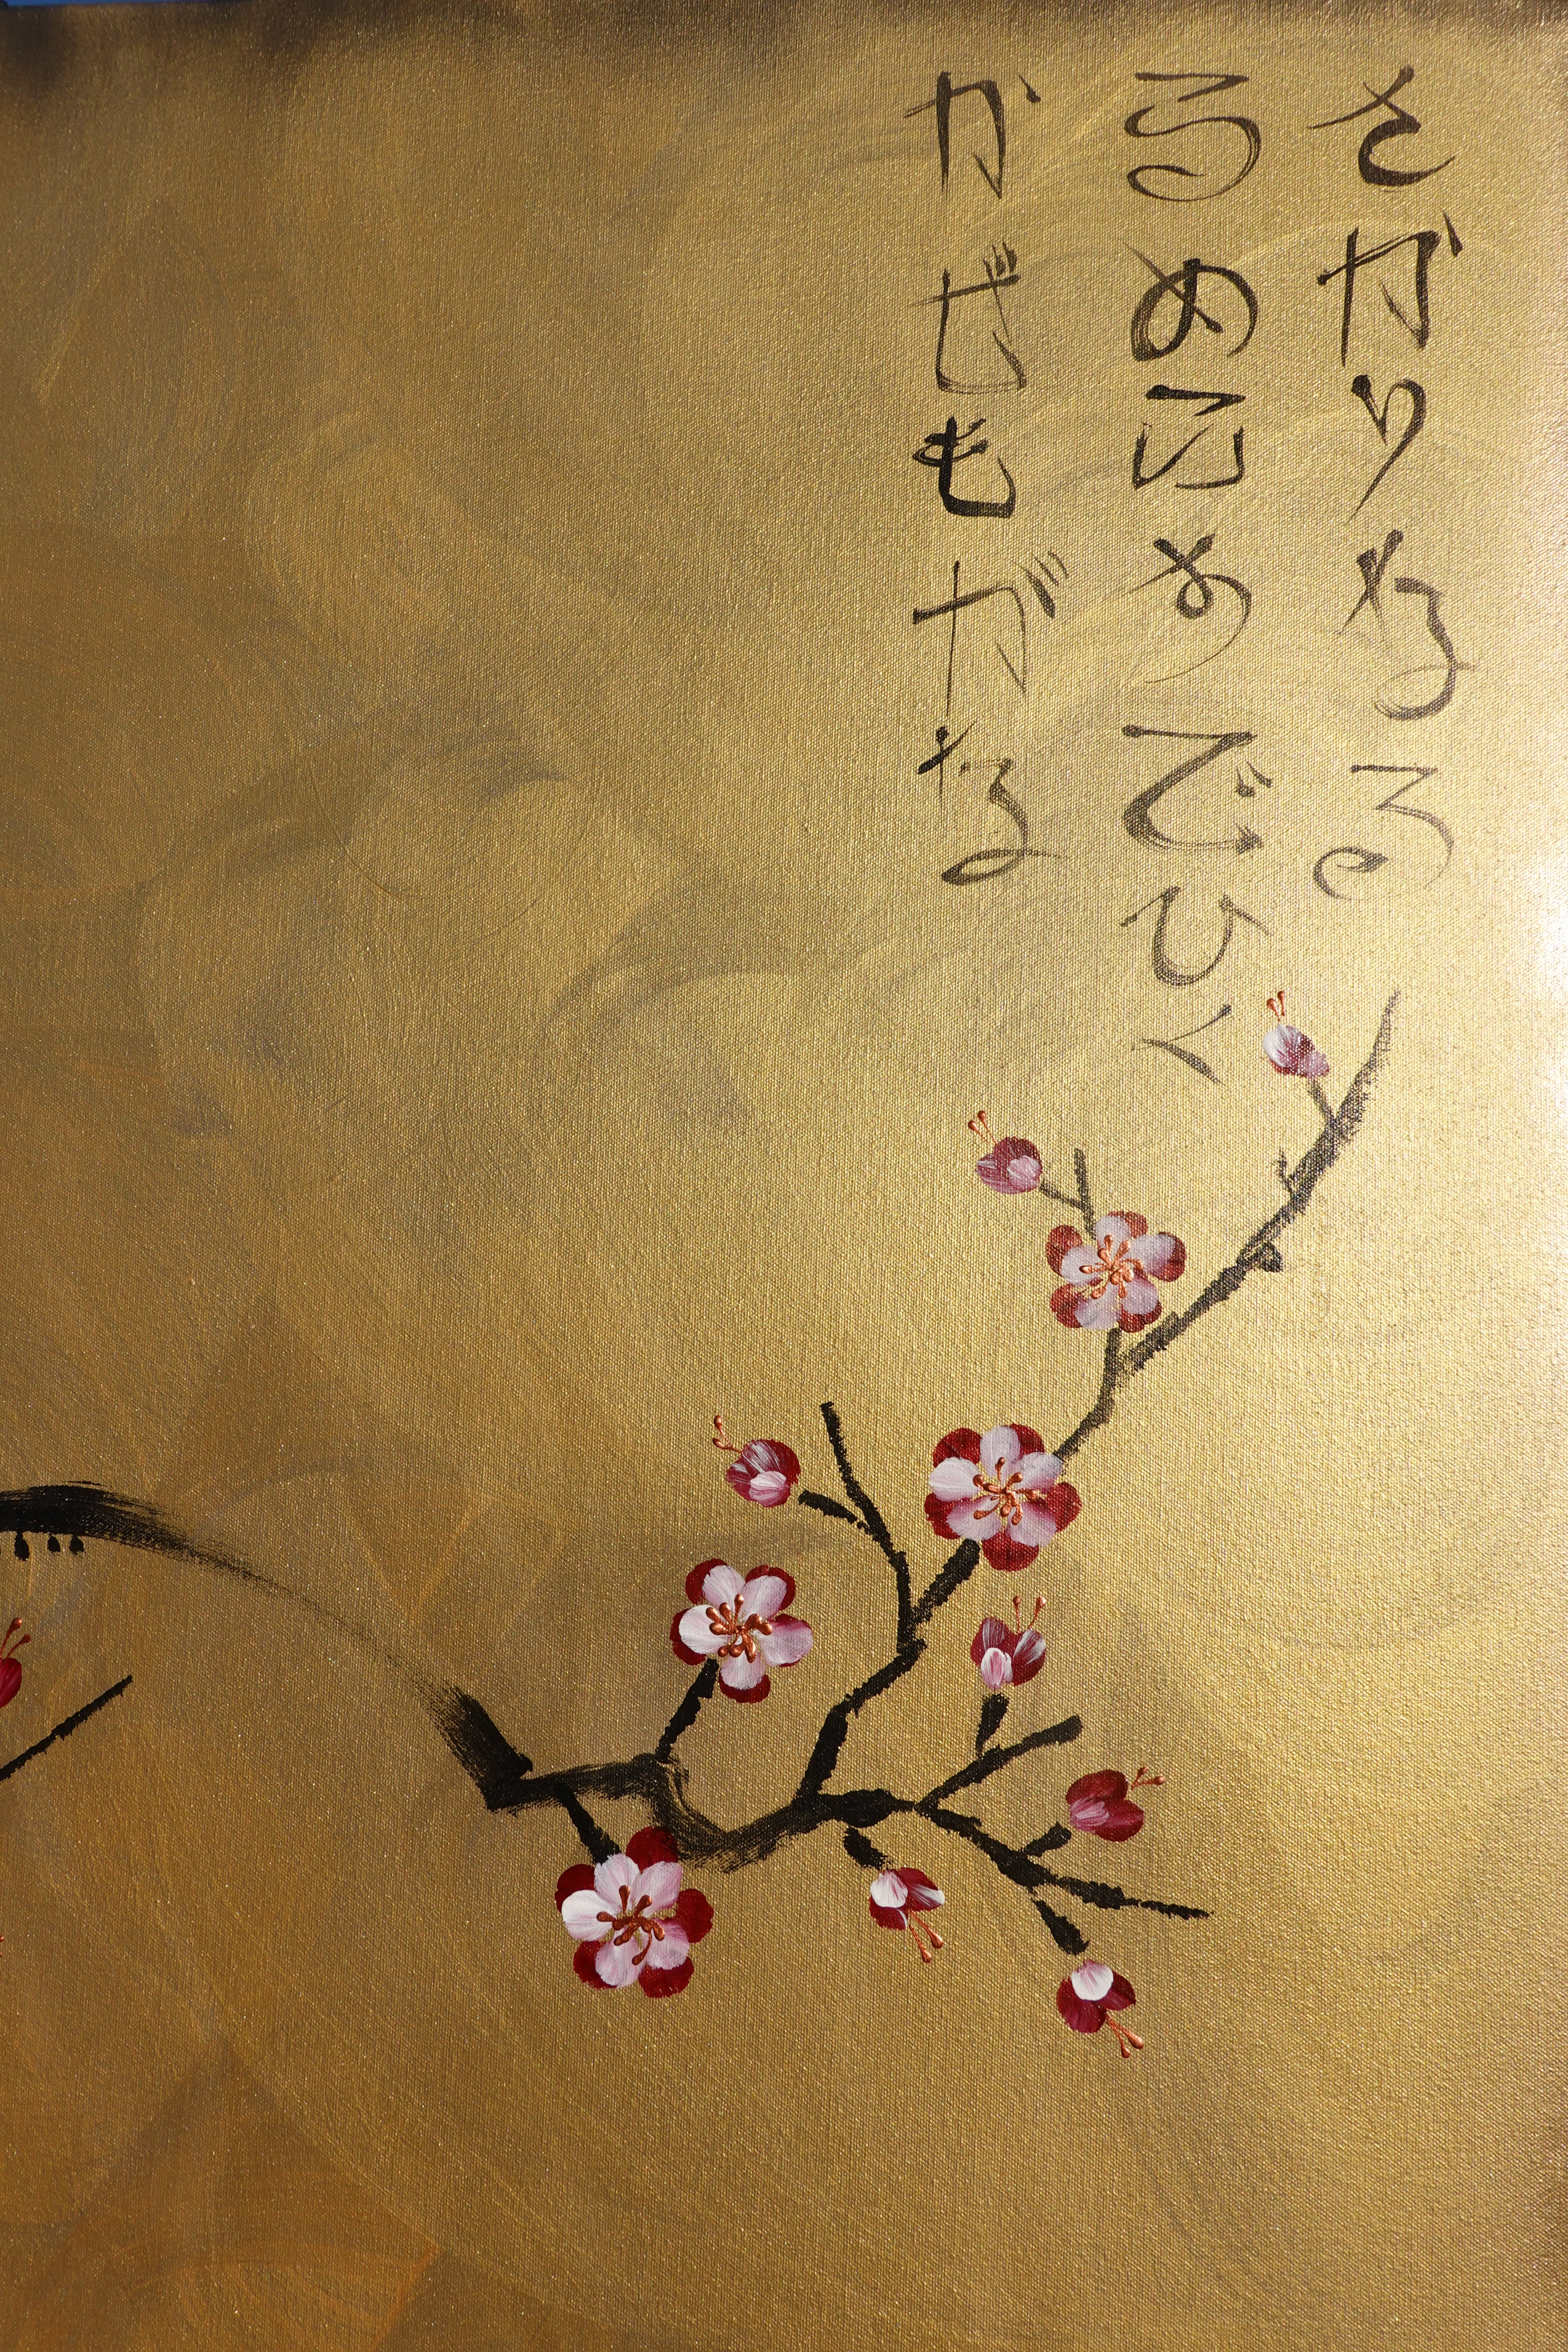 さかりなる
うめにすでひく
かぜもがな